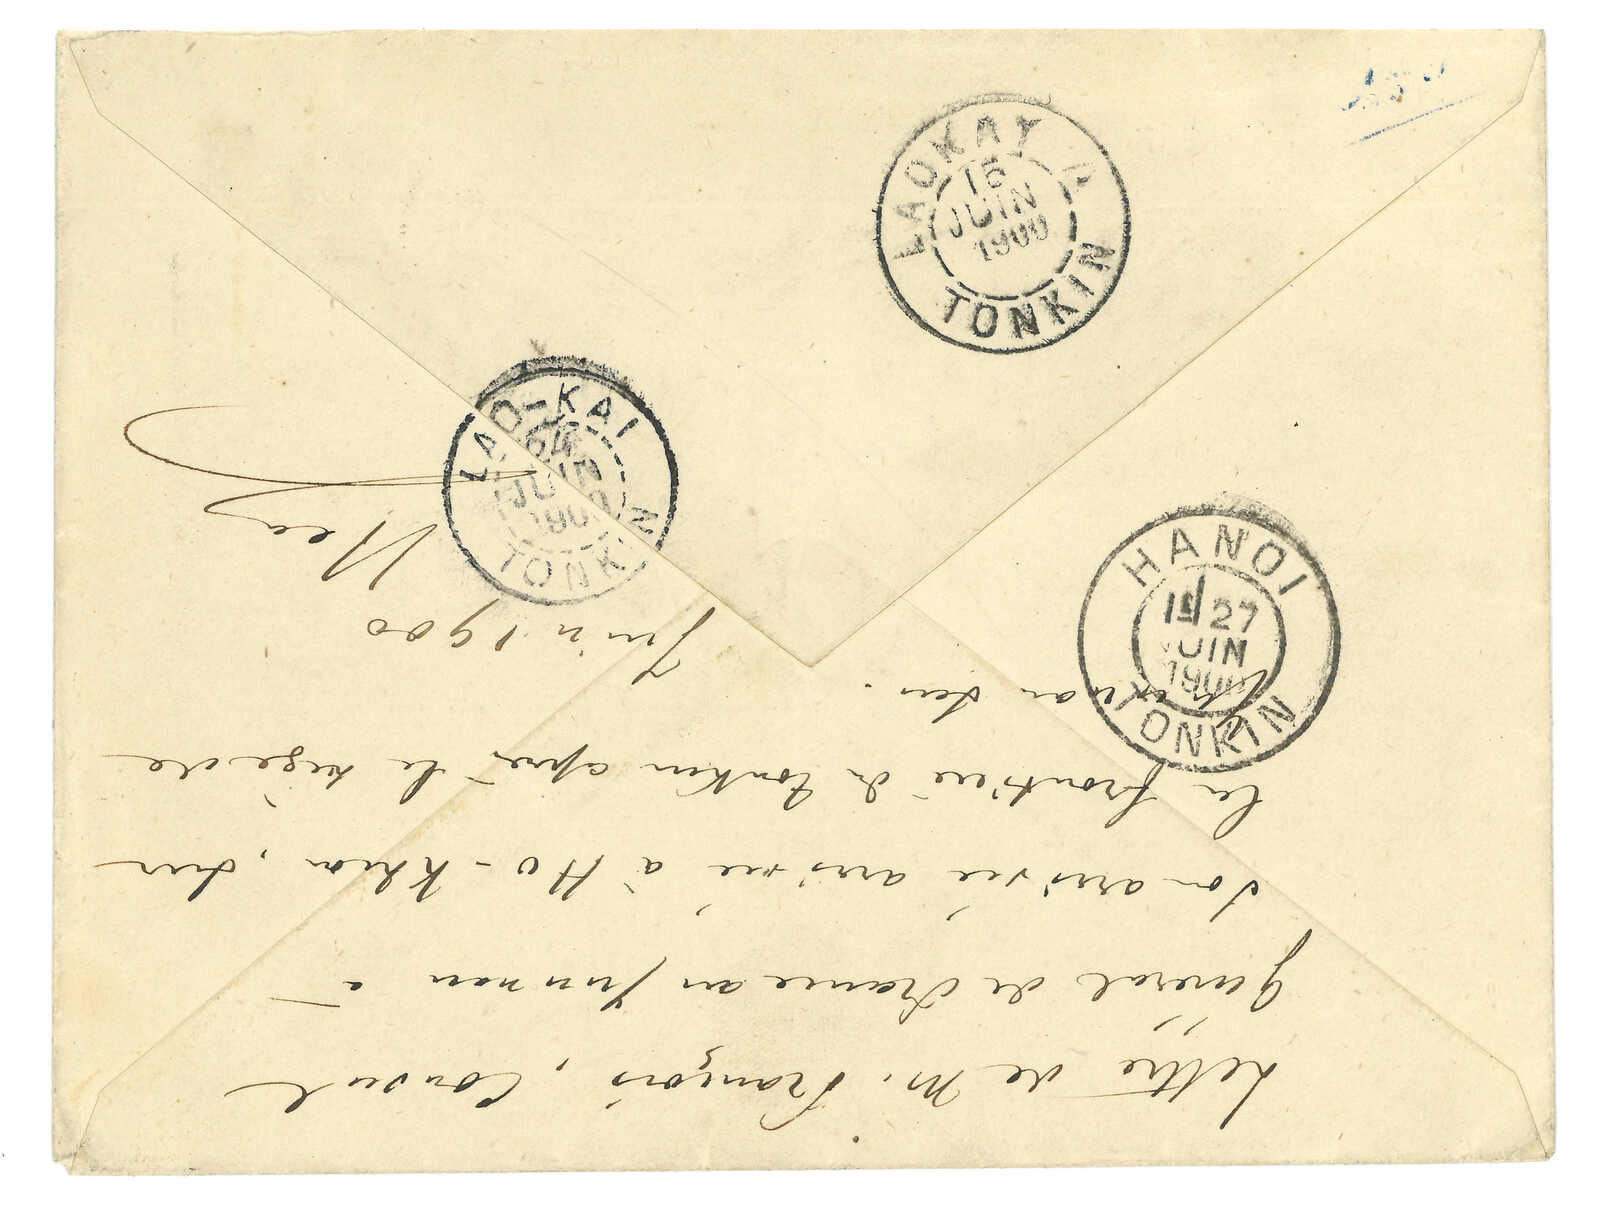 LAOKAY A
15
JUIN
1900
TONKIN
LAO-KAI
JUIN
1900
TONKIN
HANOI
1E 27
JUIN
1900
TONKIN
Lettre de M. François, Consul
Général de France au Yunnan à
son arrivée arrivée à Ho-Kheou, sur
la frontière du Tonkin après le siège de
Yunnan Sen.
Juin 1900